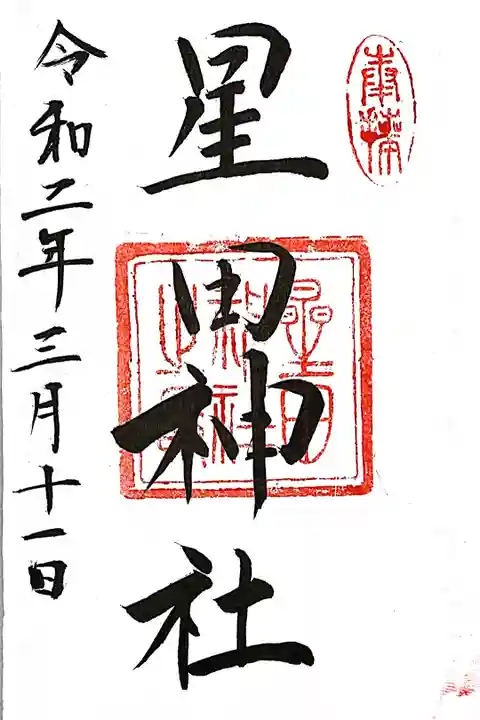 奉拝
星田神社
星田神社之印
令和二年三月十一日